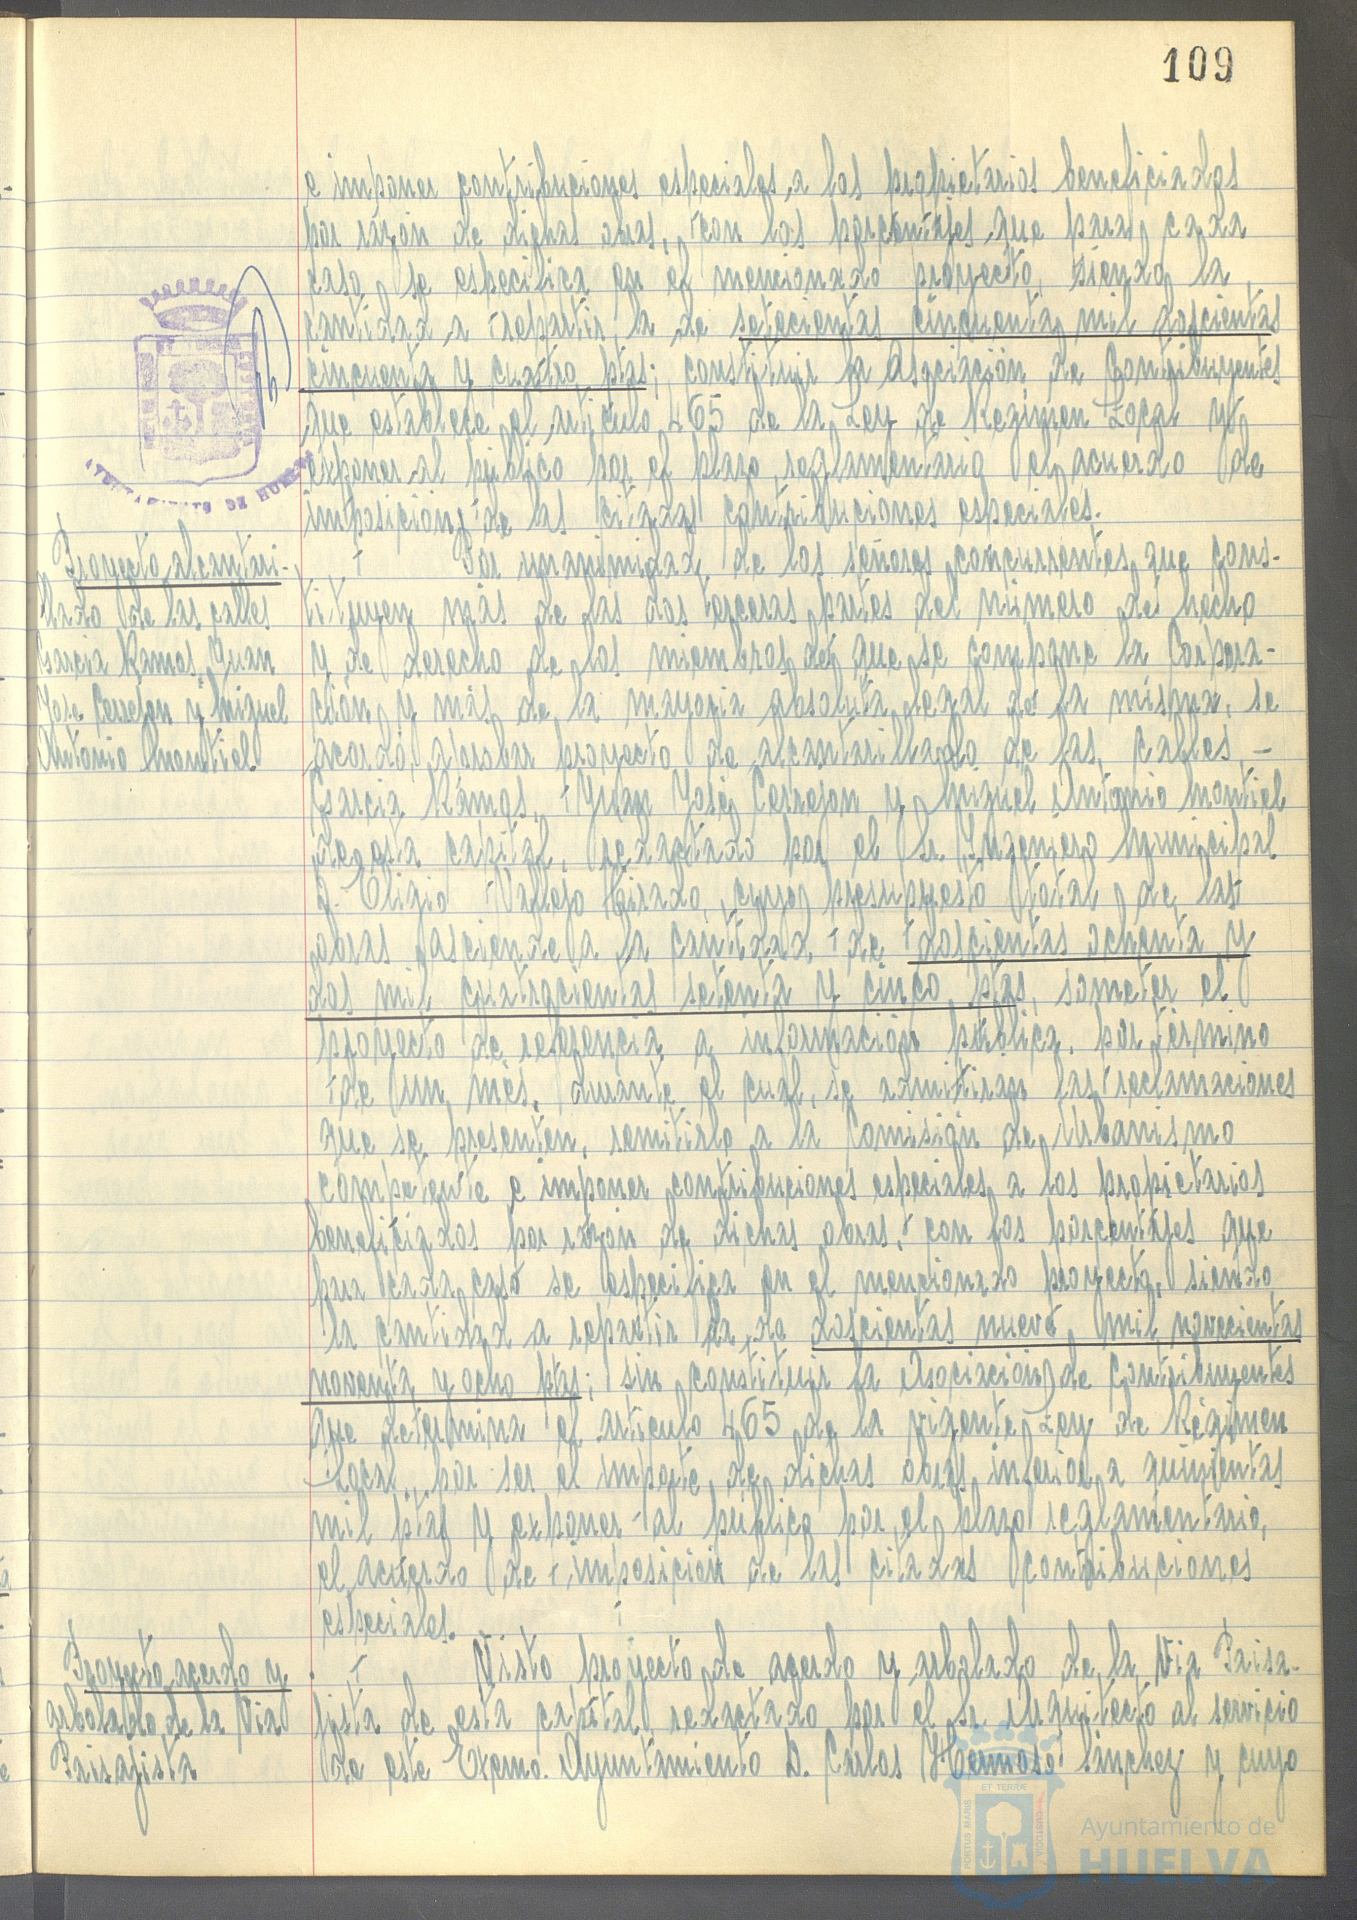 109
e imponer contribuciones especiales a los propietarios beneficiados
por razón de dichas obras, con los porcentajes que para cada
caso se especifica en el mencionado proyecto, siendo la
cantidad a repartir la de setecientas cincuenta mil doscientas
cincuenta y cuatro ptas; constituir la Asociación de Contribuyentes
que establece el articulo 465 de la Ley de Regimen Local y
exponer al público por el plazo reglamentario el acuerdo de
imposición de las citadas contribuciones especiales.
AYUNTAMIENTO DE HUELVA
Proyecto alcantari-
llado de las calles
Garcia Ramos, Juan
Jose Cerrejon y Miguel
Antonio Montiel
Por unanimidad de los señores concurrentes que cons-
tituyen más de las dos terceras partes del número de hecho
y de derecho de los miembros de que se compone la Corpora-
ción y más de la mayoria absoluta legal de la misma, se
acordó aprobar proyecto de alcantarillado de las calles
Garcia Ramos, Juan José Cerrejon y Miguel Antonio Montiel
de esta capital, redactado por el Sr. Ingeniero Municipal
D. Eligio Vallejo, cuyo presupuesto total de las
obras asciende a la cantidad de doscientas ochenta y
dos mil cuatrocientas setenta y cinco ptas, someter el
proyecto de referencia a información pública, por término
de un mes, durante el cual, se admitiran las reclamaciones
que se presenten, remitirlo a la Comisión de Urbanismo
competente e imponer contribuciones especiales a los propietarios
beneficiados por razón de dichas obras, con los porcentajes que
para cada caso se especifica en el mencionado proyecto, siendo
la cantidad a repartir la de doscientas nueve mil novecientas
noventa y ocho ptas; sin constituir la Asociación de Contribuyentes
que determina el articulo 465 de la vigente Ley de Régimen
Local, por ser el importe de dichas obras inferior a quinientas
mil ptas y exponer al público por el plazo reglamentario,
el acuerdo de imposición de las citadas contribuciones
especiales.
Proyecto acerdo y
arbolado de la Via
Paisajista
Visto proyecto de acerdo y arbolado de la Via Paisa-
jista de esta capital, redactado por el Sr. Arquitecto al servicio
de este Excmo. Ayuntamiento D. Carlos Hermoso Sánchez y cuyo
PORTUS MARIS ET TERRÆ CUSTODIA
Ayuntamiento de
HUELVA